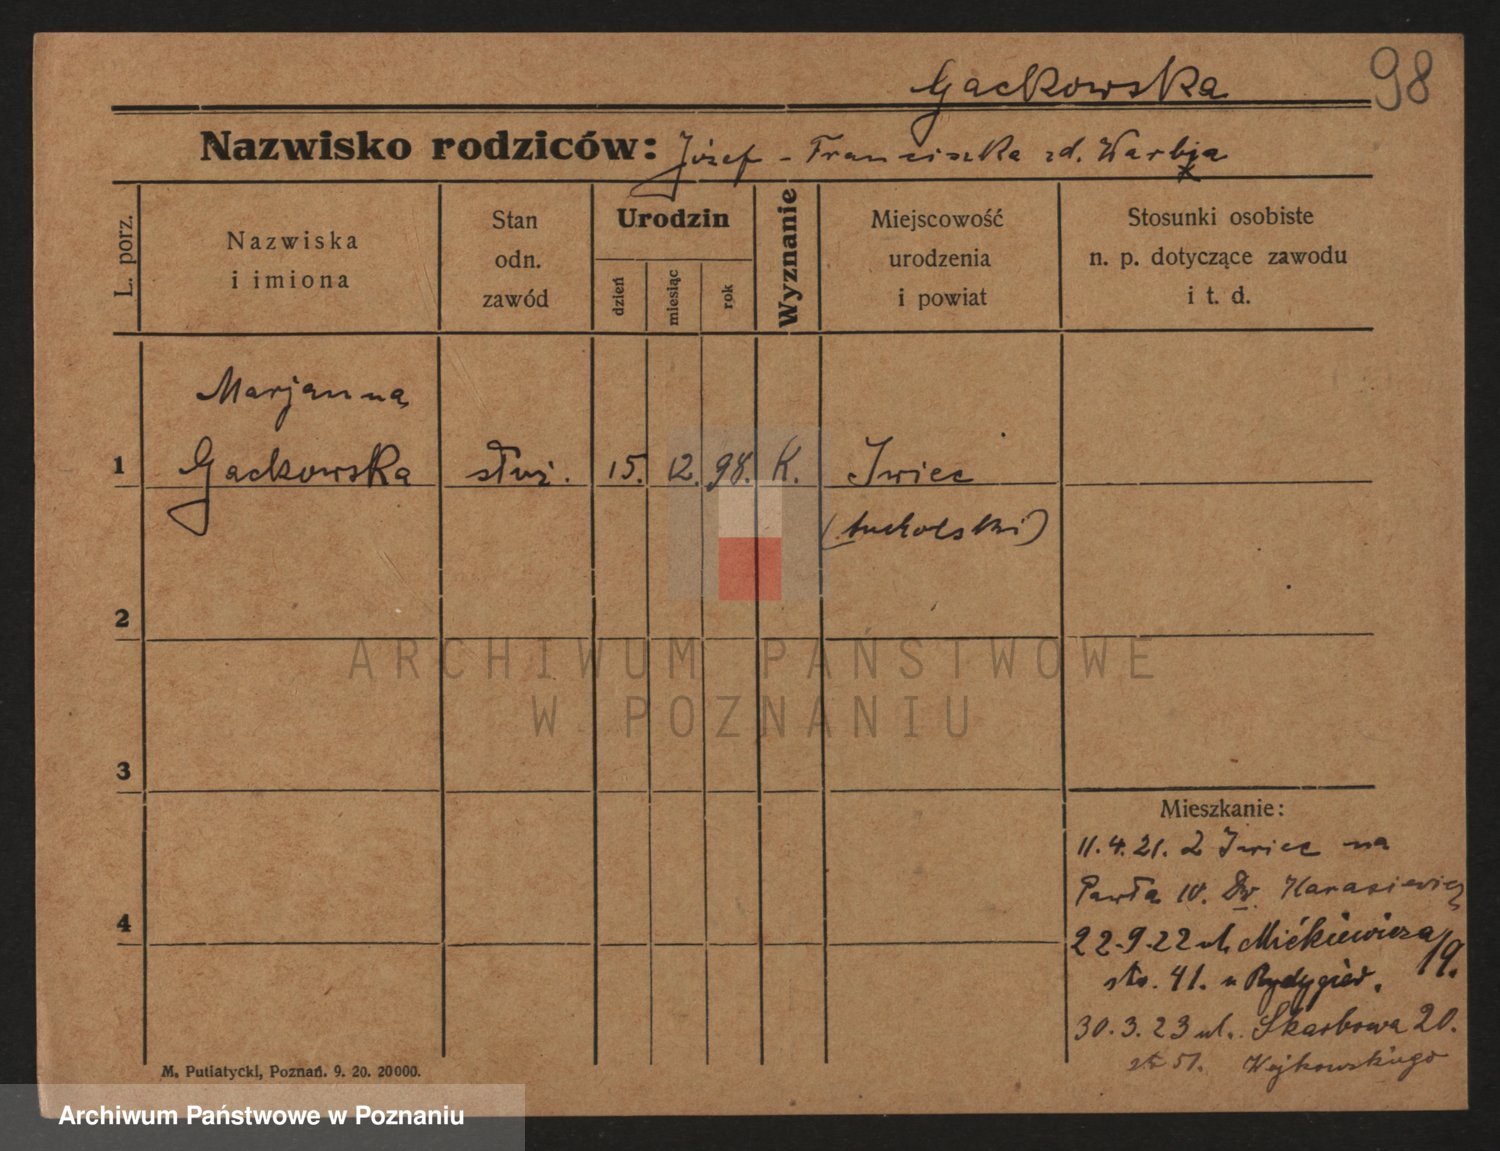 Gackowska
98
Nazwisko rodziców: Józef - Franciszka zd. Warbja
L. porz.
Nazwiska
i imiona
Stan
odn.
zawód
Urodzin
dzień
miesiąc
rok
Wyznanie
Miejscowość
urodzenia
i powiat
Stosunki osobiste
n. p. dotyczące zawodu
i t. d.
Marjanna
1 Gackowska służ. 15. 12. 98. K. Iwiec
(tucholski)
2
ARCHIWUM PAŃSTWOWE
W POZNANIU
3
Mieszkanie:
11.4.21. z Iwiec na
4 Pawła 10. Dw. Karasiewicz
22.9.22 ul. Mickiewicza 19.
str. 41. u Rydygier.
30.3.23 ul. Skarbowa 20.
51. Wejkowskiego
M. Putiatycki, Poznań. 9. 20. 20000.
Archiwum Państwowe w Poznaniu